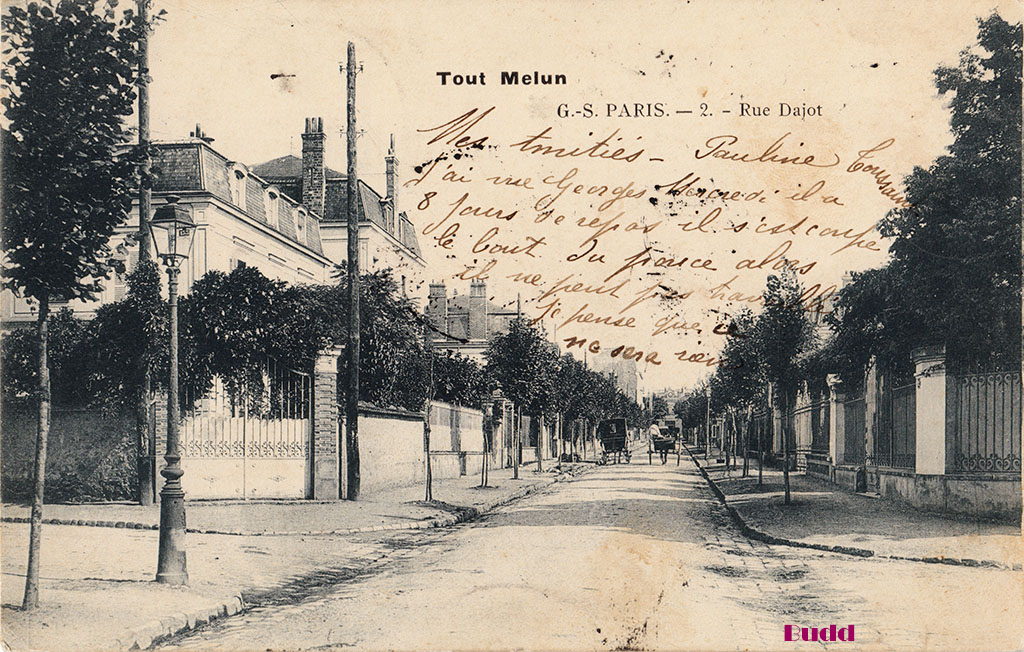 Tout Melun
G.-S. PARIS. — 2. - Rue Dajot
Mes amitiés - Pauline
J'ai vue Georges Mercredi il a
8 jours de repos il s'est coupé
le bout du pouce alors
il ne peut pas
Je pense que
ne sera rien
Budd